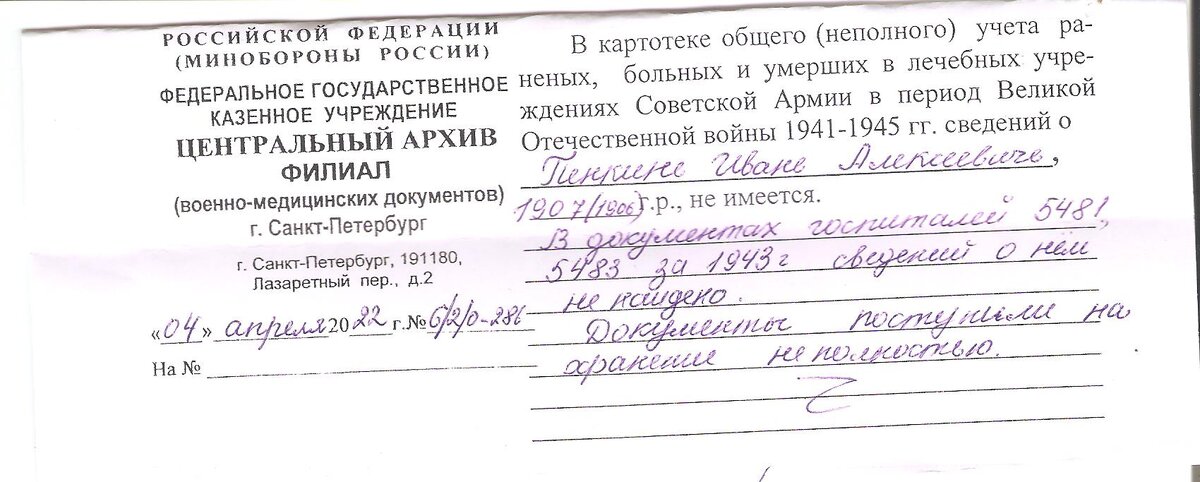 РОССИЙСКОЙ ФЕДЕРАЦИИ
(МИНОБОРОНЫ РОССИИ)
ФЕДЕРАЛЬНОЕ ГОСУДАРСТВЕННОЕ
КАЗЕННОЕ УЧРЕЖДЕНИЕ
ЦЕНТРАЛЬНЫЙ АРХИВ
ФИЛИАЛ
(военно-медицинских документов)
г. Санкт-Петербург
г. Санкт-Петербург, 191180,
Лазаретный пер., д.2
«04» апреля 2022 г.№ 6/2/0-286
На №
В картотеке общего (неполного) учета ра-
неных, больных и умерших в лечебных учре-
ждениях Советской Армии в период Великой
Отечественной войны 1941-1945 гг. сведений о
Пенкине Иване Алексеевиче,
1907(1906) г.р., не имеется.
В документах госпиталей 5481,
5483 за 1943г сведений о нём
не найдено.
Документы поступили на
хранение неполностью.